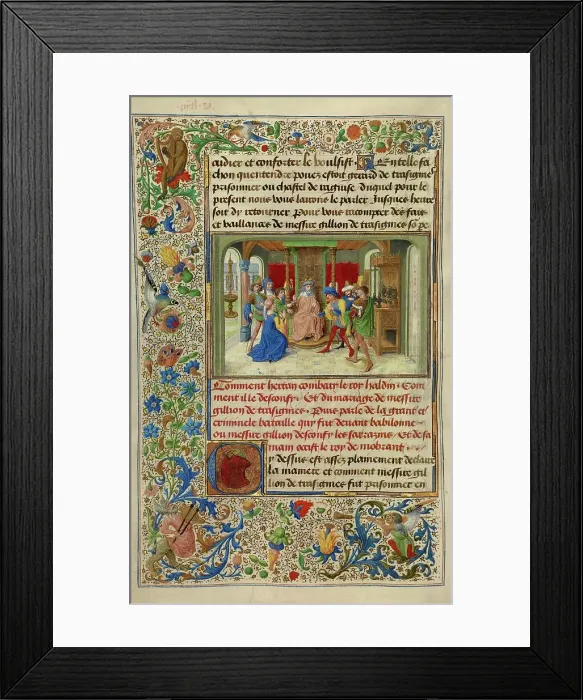 aidier et conforter le voulsist. En telle fa
chon quentendre pouez estoit gerard de trasignie
prisonnier ou chastel de raguse Duquel pour le
present nous vous lairons le parler Jusques heure
soit dy retourner Pour vous racompter des fais
et vaillances de messire gillion de trasignies so pe
Comment hertan combaty le roy haldin. Com
ment il le desconfy. Et du mariage de messire
gillion de trasignies. Puis parle de la grant et
criminele bataille quy fut deuant babilonne
ou messire gillion desconfy les sarazins. Et de sa
main occist le roy de mobrant.
Cy dessus est assez plainement declaire
la maniere et comment messire gil
lion de trasignies fut prisonnier en